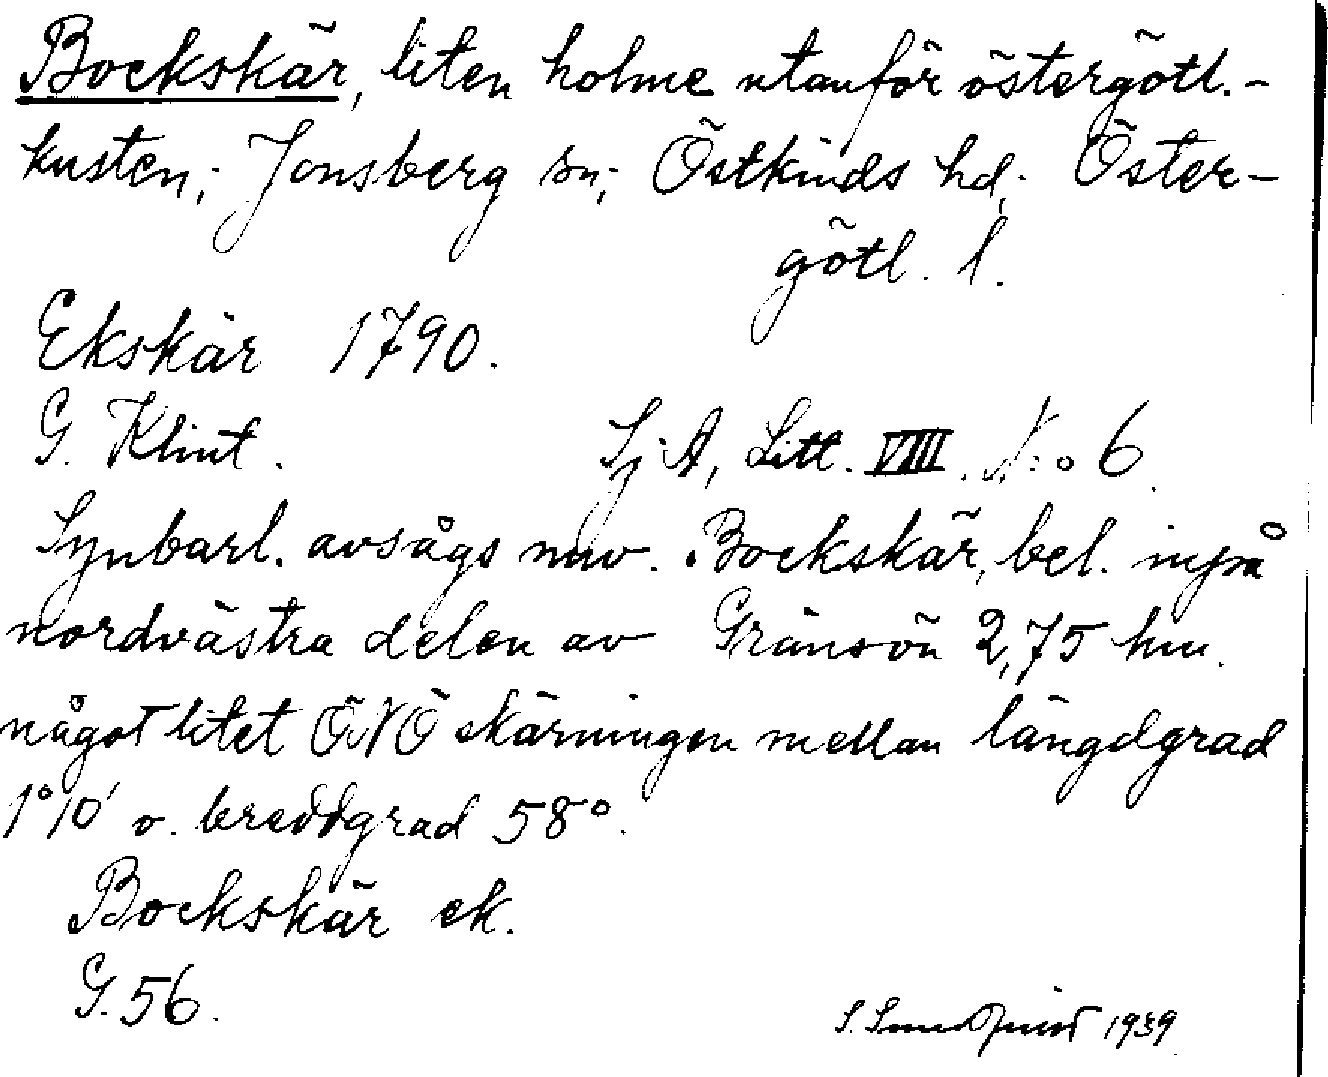 Bockskär, liten holme utanför östergötl.-
kusten; Jonsberg sn; Östkinds hd; Öster-
götl. l.
Ekskär 1790.
G. Klint. SjA, Litt. VIII. N:o 6.
Synbarl. avsågs nuv. Bockskär, bel. inpå
nordvästra delen av Gränsön 2,75 km.
något litet ÖNÖ skärningen mellan längdgrad
1°10' o. breddgrad 58°.
Bockskär ek.
G. 56.
S. 1939